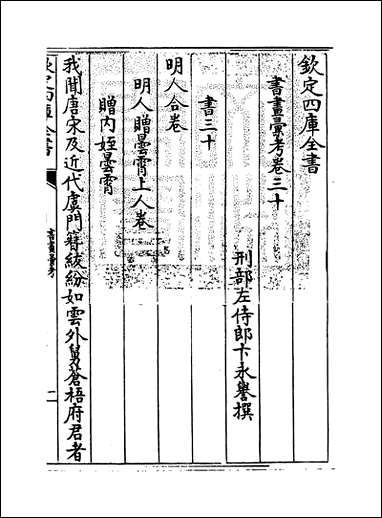 欽定四庫全書
書畫彙考卷三十
刑部左侍郎卞永譽撰
書三十
明人合卷
明人贈曇霄上人卷
贈内姪曇霄
我聞唐宋及近代虞門簪紱紛如雲外舅蒼梧府君者
欽定四庫全書
書畫彙考
二